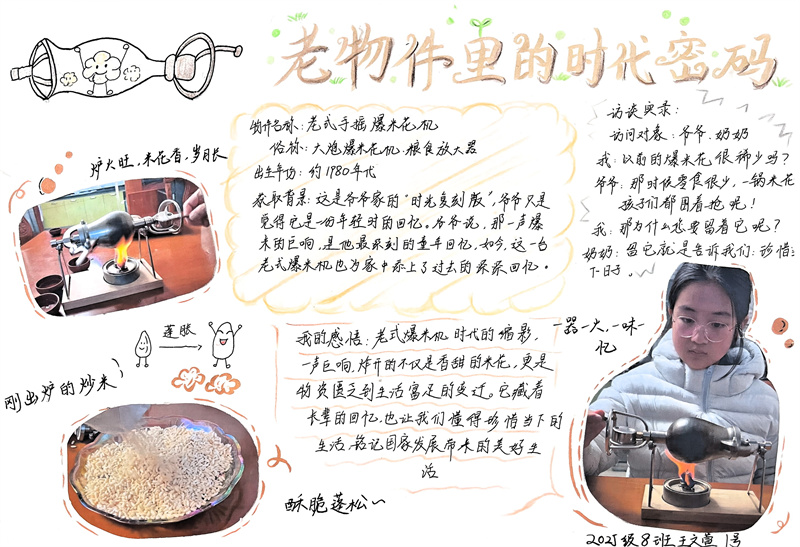 老物件里的时代密码
炉火旺，米花香，岁月长
物件名称：老式手摇爆米花机
俗称：大炮爆米花机·粮食放大器
出生年份：约1980年代
获取背景：这是爷爷家的“时光复刻版”，爷爷只是
觉得它是一份年轻时的回忆。爷爷说，那一声爆
米的巨响，是他最深刻的童年回忆，如今，这一台
老式爆米机也为家中添上了过去的亲亲回忆。
访谈实录：
访问对象：爷爷、奶奶
我：以前的爆米花很稀少吗？
爷爷：那时候零食很少，一锅米花
孩子们都围着抢呢！
我：那为什么想要留着它呢？
奶奶：留它就是告诉我们：珍惜
下日子。
蓬胀
刚出炉的炒米
酥脆蓬松～
我的感悟：老式爆米机 时代的缩影，
一声巨响，炸开的不仅是香甜的米花，更是
物资匮乏到生活富足的变迁。它藏着
长辈的回忆，也让我们懂得珍惜当下的
生活，铭记国家发展带来的美好生
活
一器一火，一味一
忆
2025级8班 王文萱 1号